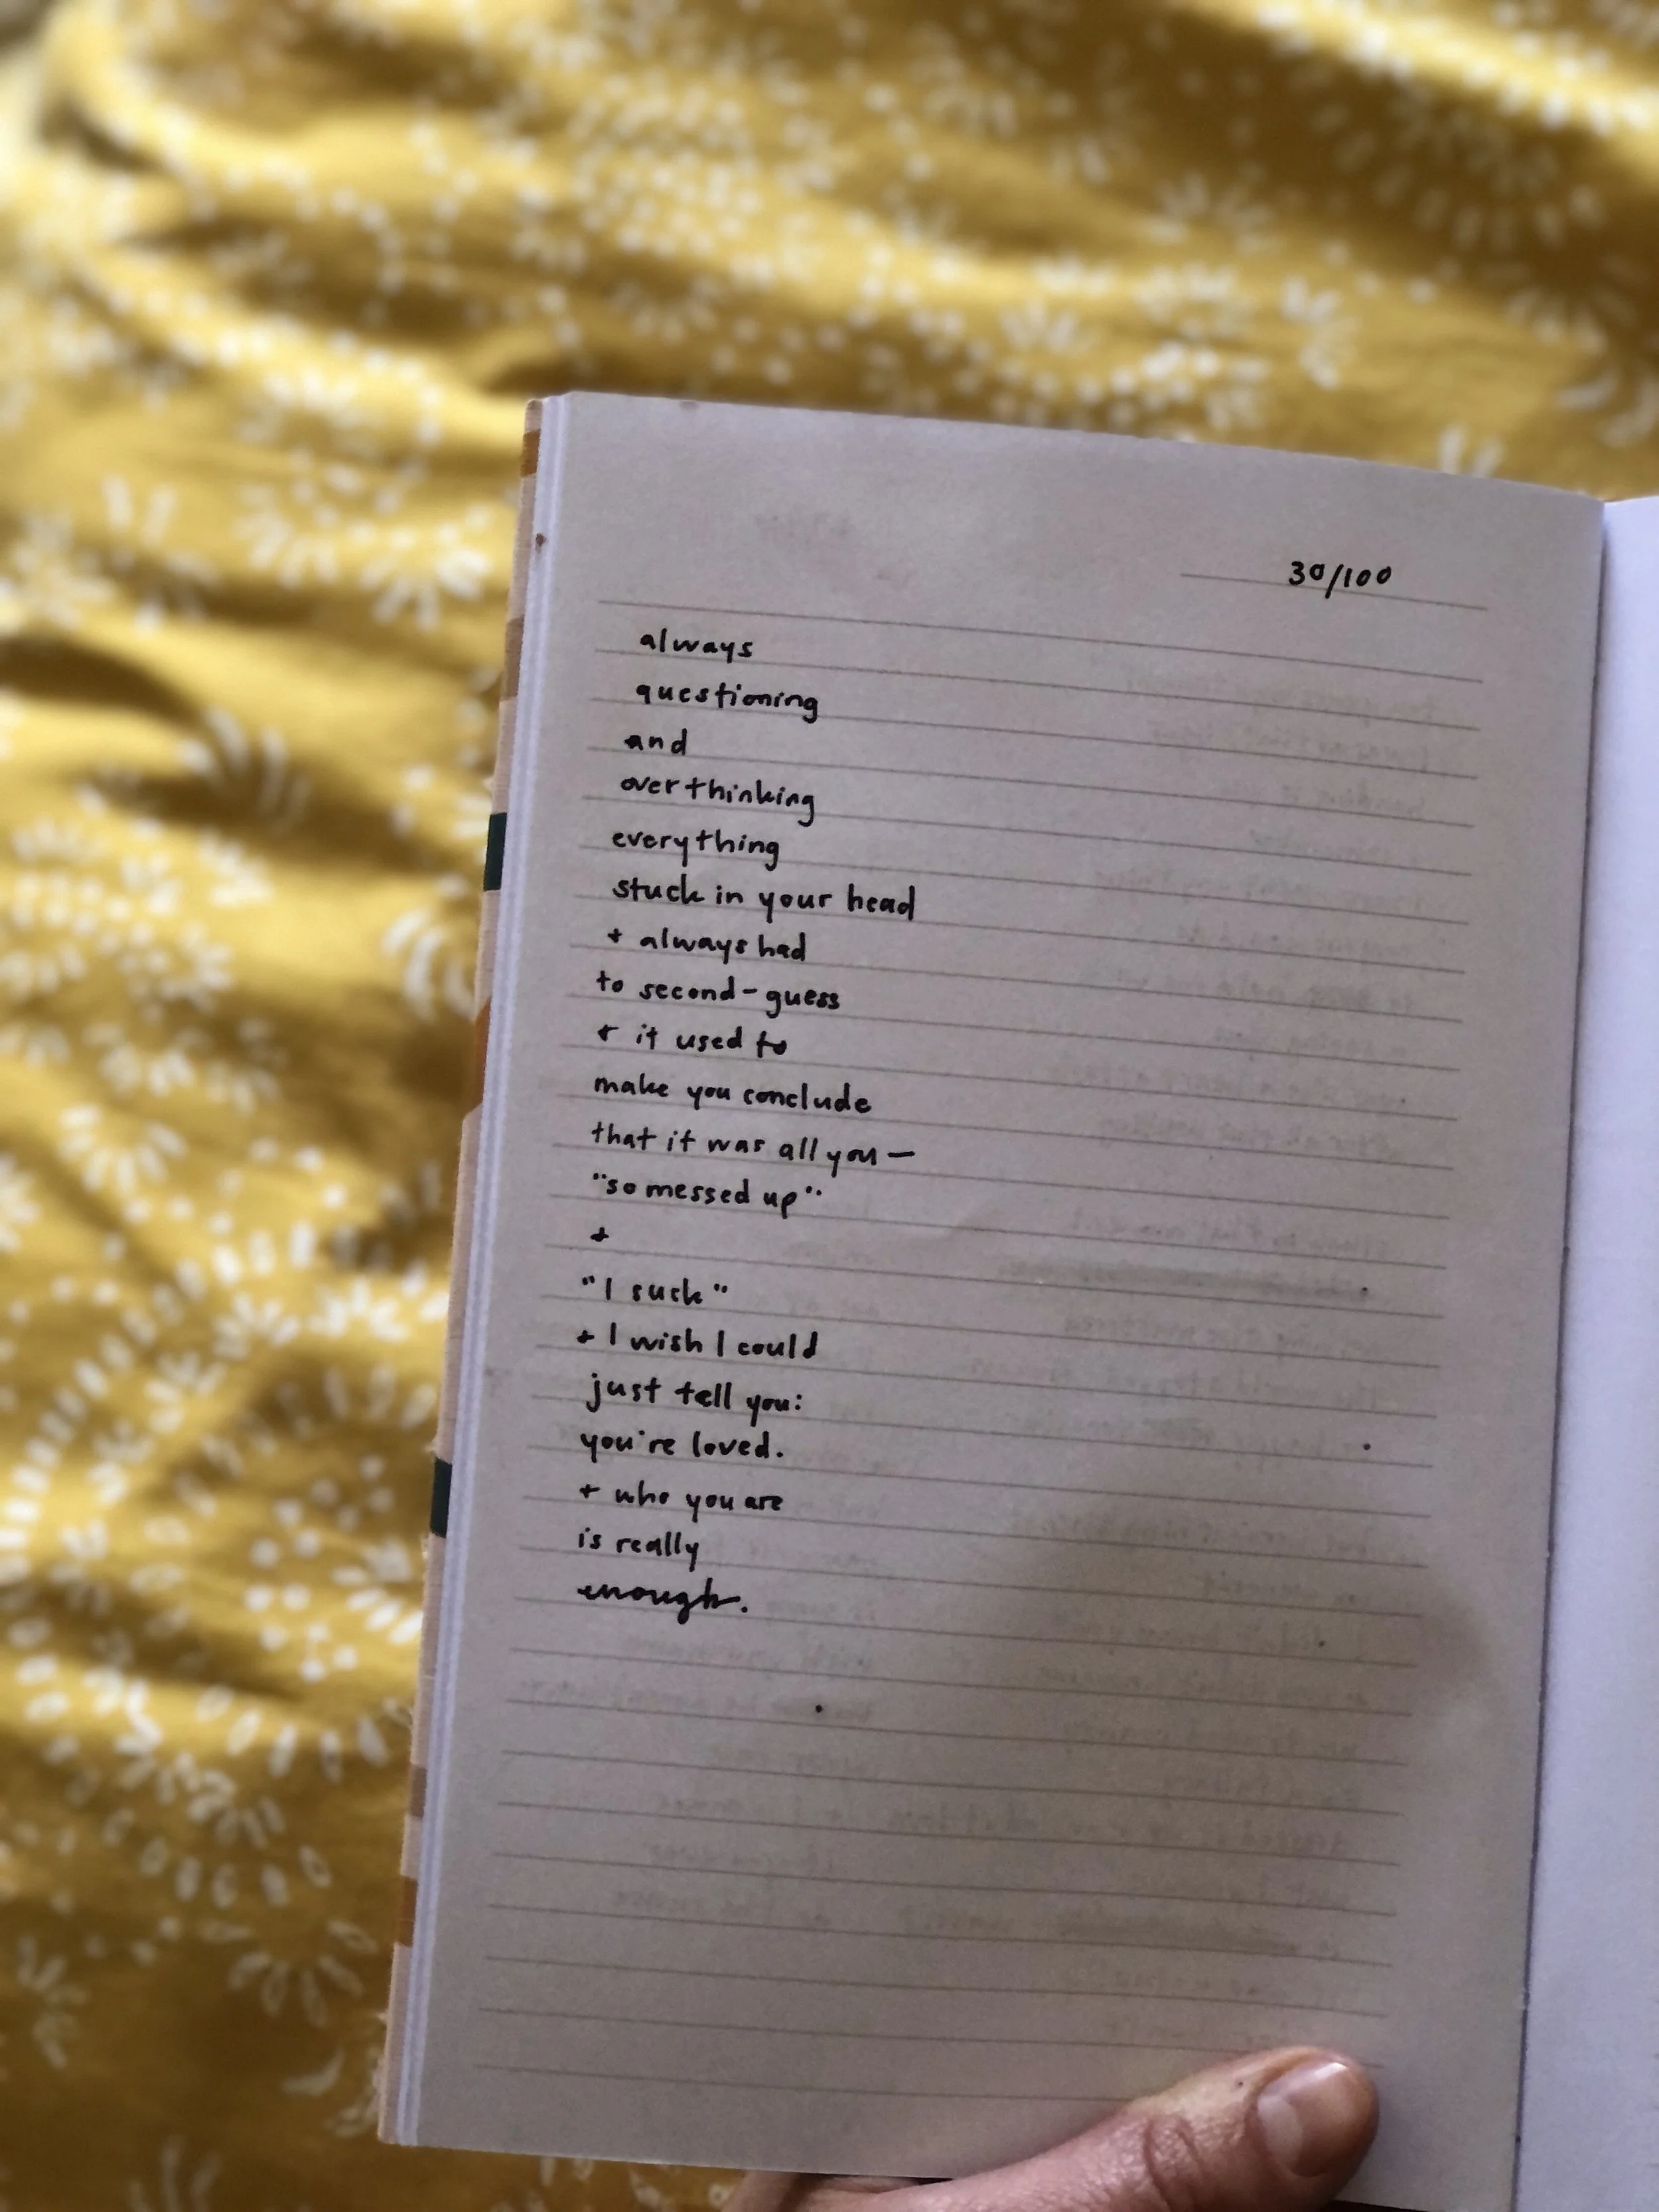 30/100
always
questioning
and
overthinking
everything
stuck in your head
+ always had
to second-guess
+ it used to
make you conclude
that it was all you—
"so messed up"
+
"I suck"
+ I wish I could
just tell you:
you're loved.
+ who you are
is really
enough.